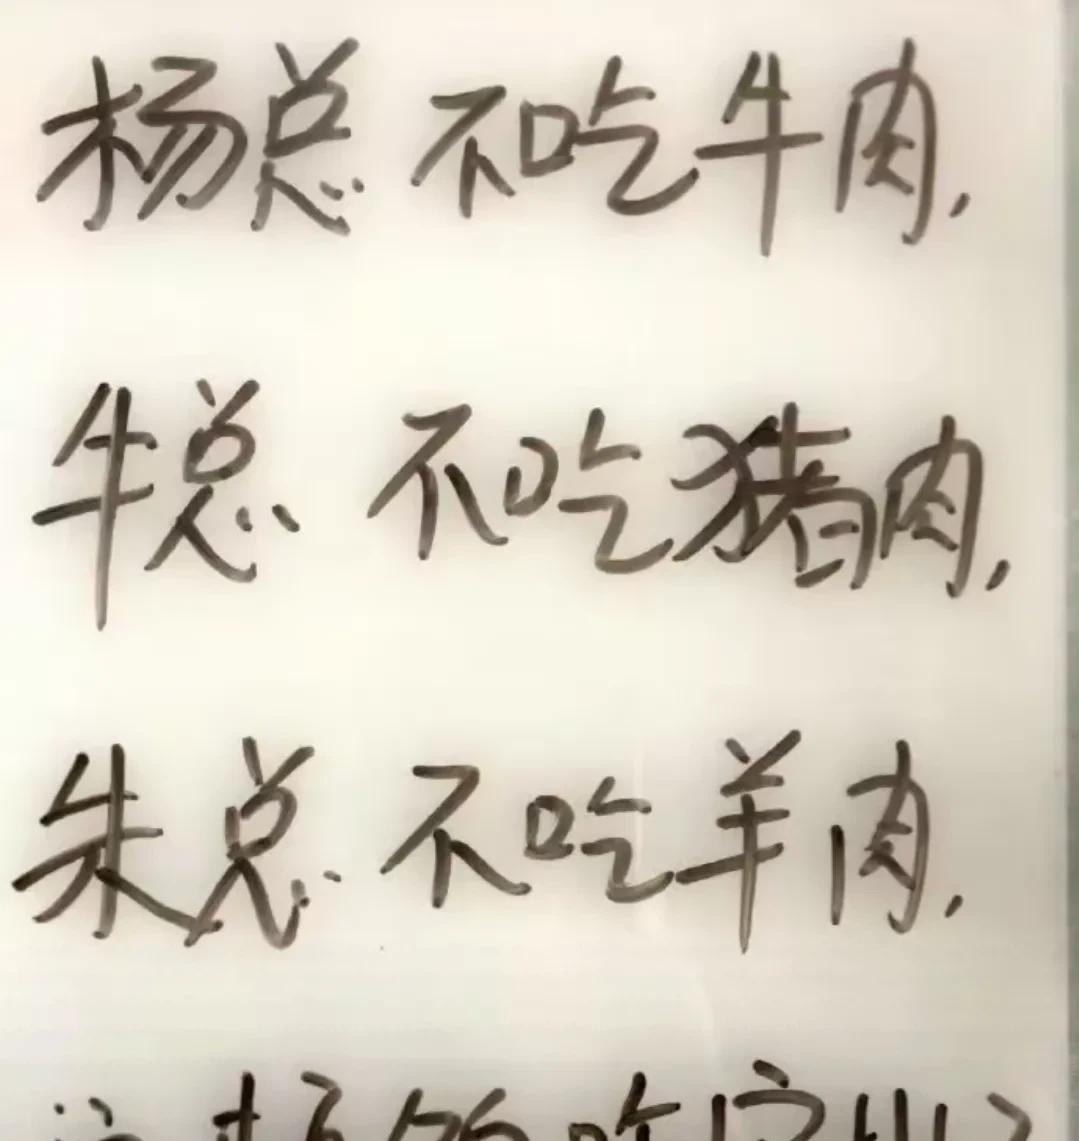 杨总不吃牛肉,
牛总不吃猪肉,
朱总不吃羊肉.